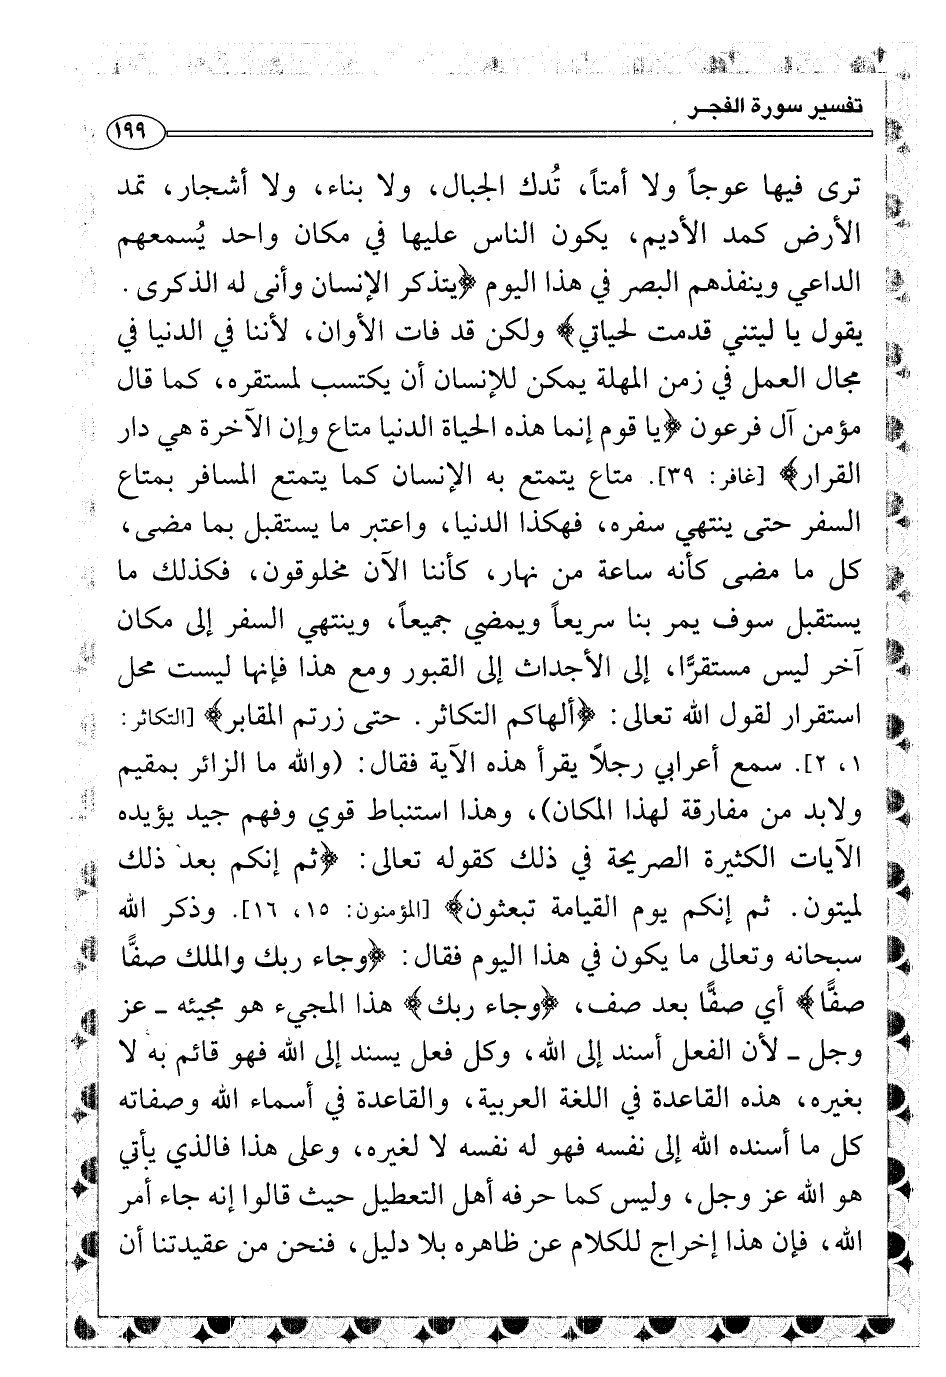 تفسير سورة الفجر
١٩٩
ترى فيها عوجاً ولا أمتاً، تُدك الجبال، ولا بناء، ولا أشجار، تمد
الأرض كمد الأديم، يكون الناس عليها في مكان واحد يُسمعهم
الداعي وينفذهم البصر في هذا اليوم ﴿يتذكر الإنسان وأنى له الذكرى.
يقول يا ليتني قدمت لحياتي﴾ ولكن قد فات الأوان، لأننا في الدنيا في
مجال العمل في زمن المهلة يمكن للإنسان أن يكتسب لمستقره، كما قال
مؤمن آل فرعون ﴿يا قوم إنما هذه الحياة الدنيا متاع وإن الآخرة هي دار
القرار﴾ [غافر: ٣٩]. متاع يتمتع به الإنسان كما يتمتع المسافر بمتاع
السفر حتى ينتهي سفره، فهكذا الدنيا، واعتبر ما يستقبل بما مضى،
كل ما مضى كأنه ساعة من نهار، كأننا الآن مخلوقون، فكذلك ما
يستقبل سوف يمر بنا سريعاً ويمضي جميعاً، وينتهي السفر إلى مكان
آخر ليس مستقرًّا، إلى الأجداث إلى القبور ومع هذا فإنها ليست محل
استقرار لقول الله تعالى: ﴿ألهاكم التكاثر. حتى زرتم المقابر﴾ [التكاثر:
١، ٢]. سمع أعرابي رجلاً يقرأ هذه الآية فقال: (والله ما الزائر بمقيم
ولابد من مفارقة لهذا المكان)، وهذا استنباط قوي وفهم جيد يؤيده
الآيات الكثيرة الصريحة في ذلك كقوله تعالى: ﴿ثم إنكم بعد ذلك
لميتون. ثم إنكم يوم القيامة تبعثون﴾ [المؤمنون: ١٥، ١٦]. وذكر الله
سبحانه وتعالى ما يكون في هذا اليوم فقال: ﴿وجاء ربك والملك صفًّا
صفًّا﴾ أي صفًّا بعد صف، ﴿وجاء ربك﴾ هذا المجيء هو مجيئه ـ عز
وجل ـ لأن الفعل أسند إلى الله، وكل فعل يسند إلى الله فهو قائم به لا
بغيره، هذه القاعدة في اللغة العربية، والقاعدة في أسماء الله وصفاته
كل ما أسنده الله إلى نفسه فهو له نفسه لا لغيره، وعلى هذا فالذي يأتي
هو الله عز وجل، وليس كما حرفه أهل التعطيل حيث قالوا إنه جاء أمر
الله، فإن هذا إخراج للكلام عن ظاهره بلا دليل، فنحن من عقيدتنا أن